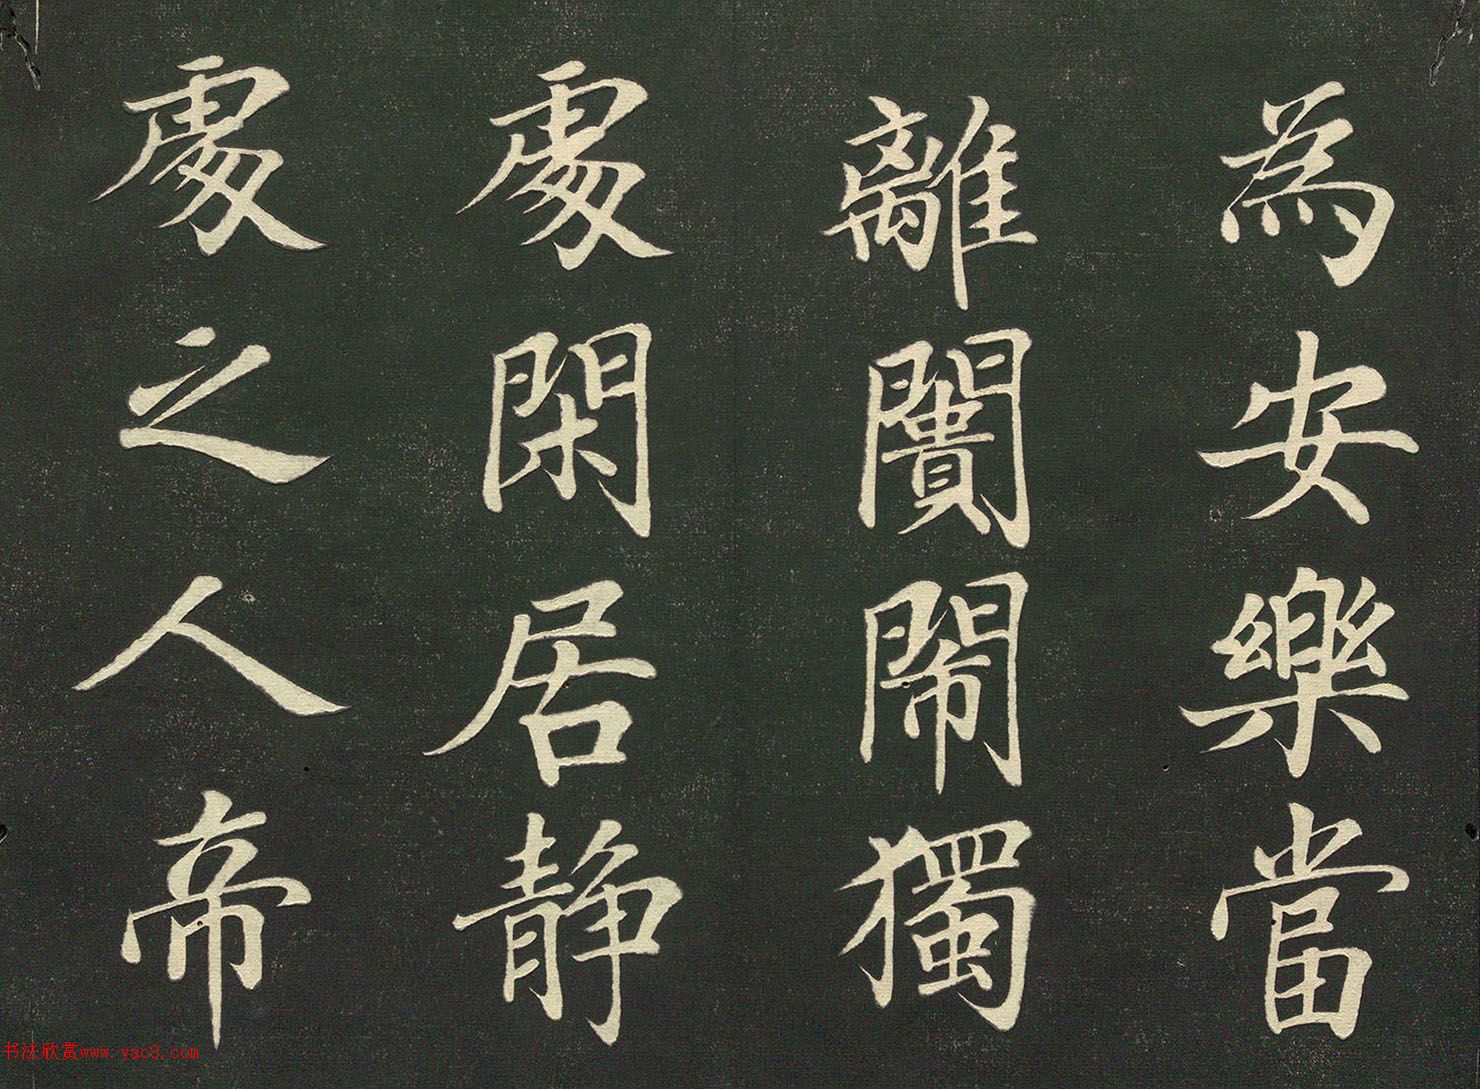 為安樂當
離闠閙獨
處閑居静
處之人帝
书法欣赏www.yac8.com